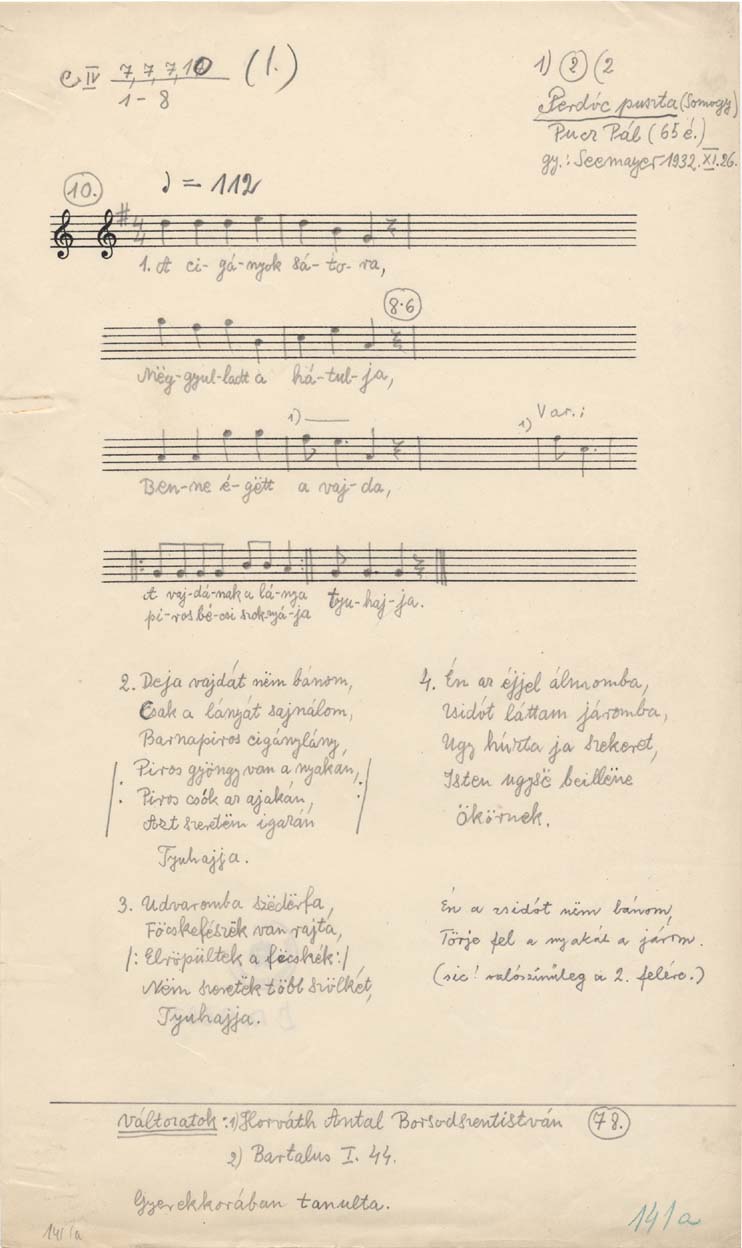 C IV 7, 7, 7, 10 (1.)
1-8
1) 2 (2
Perdóc puszta (Somogy)
Pucz Pál (65 é.)
gy.: Seemayer 1932. XI. 26.
10.
♩ = 112
4/4
1. A ci-gá-nyok sá-to-ra,
8.6
Mëg-gyul-ladt a há-tul-ja,
1)
1) Var.:
Ben-ne é-gëtt a vaj-da,
A vaj-dá-nak a lá-nya Tyu-haj-ja.
pi-ros bé-csi szok-nyá-ja
2. Deja vajdát nëm bánom,
Csak a lányát sajnálom,
Barnapiros cigánylány,
/: Piros gyöngy van a nyakán,
Piros csók az ajakán, :/
Azt szeretëm igazán
Tyuhajja.
3. Udvaromba szëdërfa,
Föcskefészëk van rajta,
/: Elröpültek a fëcskék :/
Nëm szeretëk több szölkét,
Tyuhajja.
4. Én az éjjel álmomba,
Zsidót láttam járomba,
Ugy húzta ja szekeret,
Isten ugysë beillëne
Ökörnek.
Én a zsidót nëm bánom,
Törje fel a nyakát a járom.
(sic! valószínűleg a 2. felére.)
Változatok: 1) Horváth Antal Borsodszentistván 78.
2) Bartalus I. 44.
Gyerekkorában tanulta.
141/a
141/a